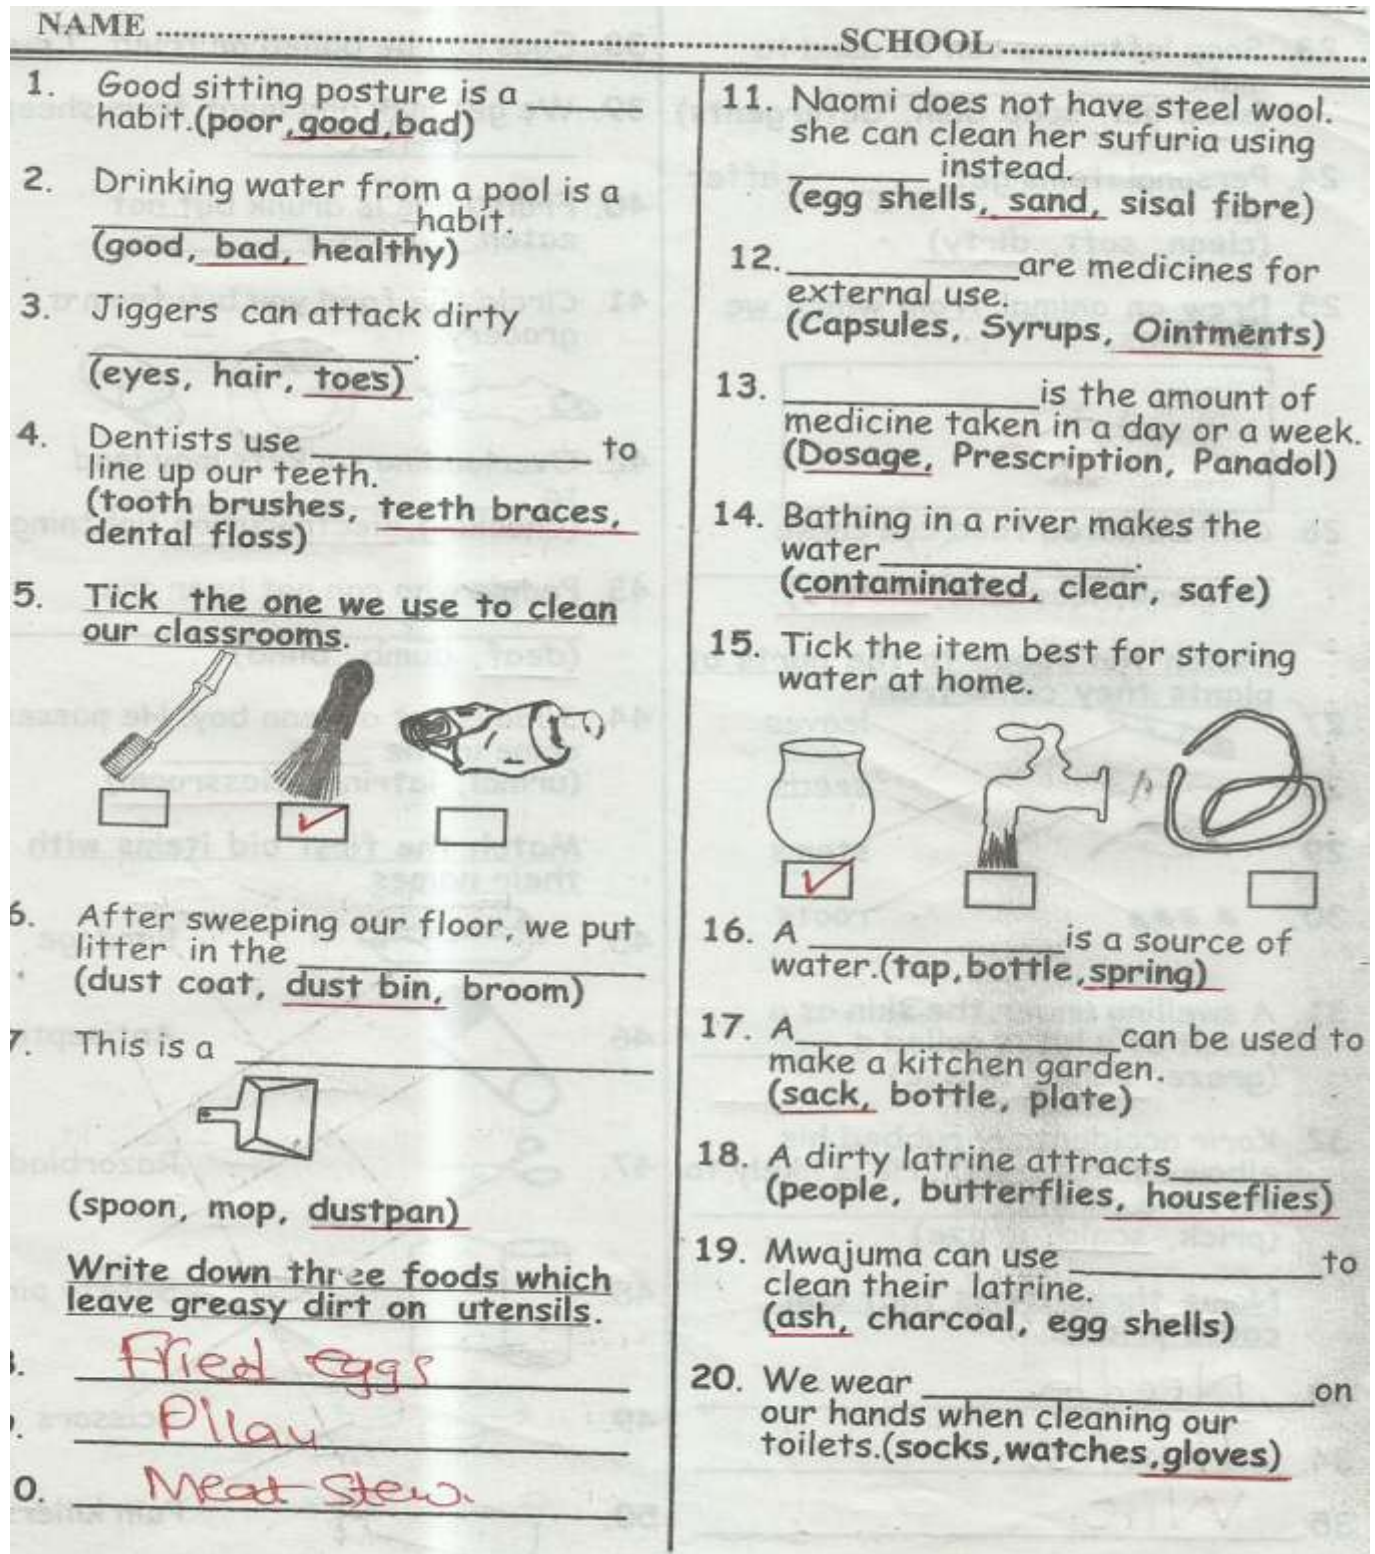 NAME ........................................................SCHOOL ..............................
1. Good sitting posture is a
habit.(poor,good,bad)
2. Drinking water from a pool is a
____________habit.
(good, bad, healthy)
3. Jiggers can attack dirty
____________.
(eyes, hair, toes)
4. Dentists use ____________ to
line up our teeth.
(tooth brushes, teeth braces,
dental floss)
5. Tick the one we use to clean
our classrooms.
6. After sweeping our floor, we put
litter in the ____________
(dust coat, dust bin, broom)
7. This is a ____________
(spoon, mop, dustpan)
Write down three foods which
leave greasy dirt on utensils.
Fried eggs
Pilau
0. Meat stew.
11. Naomi does not have steel wool.
she can clean her sufuria using
________ instead.
(egg shells, sand, sisal fibre)
12.____________are medicines for
external use.
(Capsules, Syrups, Ointments)
13. ____________is the amount of
medicine taken in a day or a week.
(Dosage, Prescription, Panadol)
14. Bathing in a river makes the
water____________.
(contaminated, clear, safe)
15. Tick the item best for storing
water at home.
16. A ____________is a source of
water.(tap,bottle,spring)
17. A____________can be used to
make a kitchen garden.
(sack, bottle, plate)
18. A dirty latrine attracts________
(people, butterflies, houseflies)
19. Mwajuma can use ____________to
clean their latrine.
(ash, charcoal, egg shells)
20. We wear ____________on
our hands when cleaning our
toilets.(socks,watches,gloves)